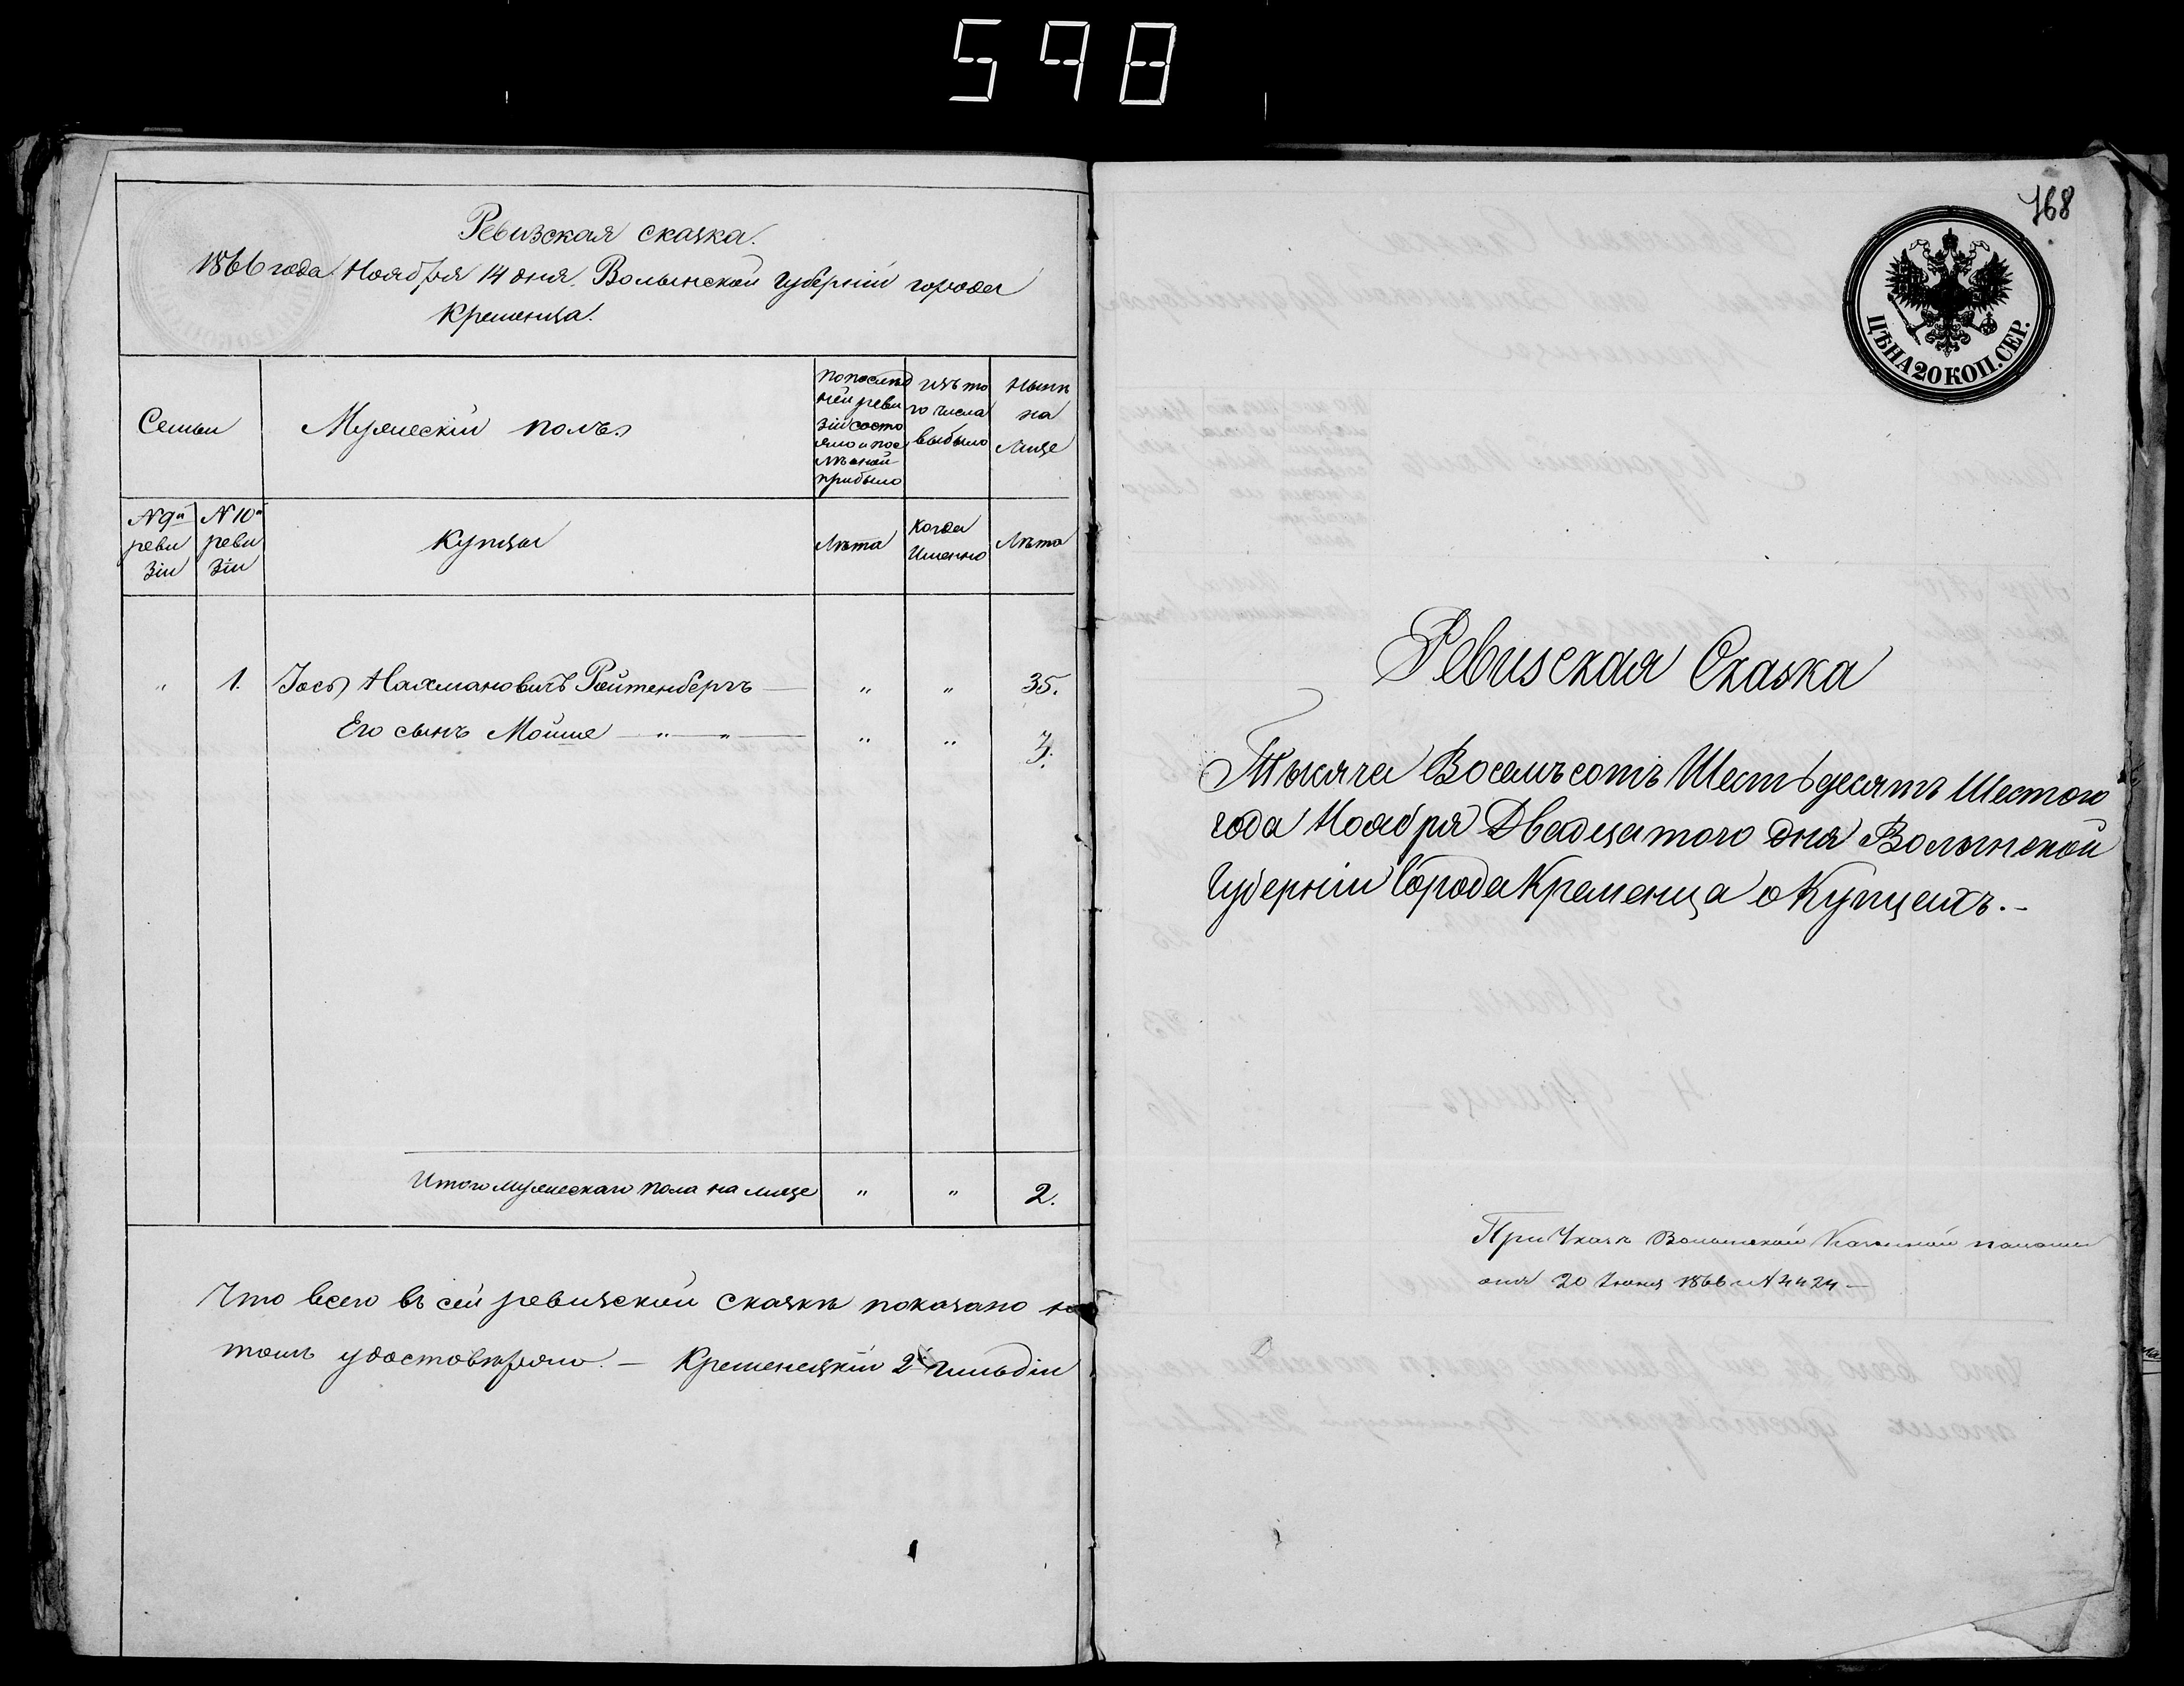 598
Ревизская сказка.
1866 года Ноября 14 дня. Волынской губерніи города
Кременца.
Семьи
Мужескій полъ
по послѣд
ней реви
зіи состо
яло и пос
лѣ оной
прибыло
изъ то
го числа
выбыло
Нынѣ
на
лице
№ 9й
реви
зіи
№ 10й
реви
зіи
Купцы
Лѣта
когда
именно
Лѣта
" 1. Іось Нахмановичъ Ройтенбергъ — " " 35.
Его сынъ Мойше — " — " — " "
Итого мужескаго пола на лице " " 2.
Что всего въ сей ревизской сказкѣ показано
томъ удостовѣряю. — Кременецкій 2й гильдіи
168
ЦѢНА 20 КОП. СЕР.
Ревизская Сказка
Тысяча Восемьсотъ Шестьдесятъ Шестого
года Ноября Двадцатого дня Волынской
Губерніи Города Кременца о Купцахъ. —
При Указѣ Волынской Казенной палаты
20 Іюня 1866 № 4424 —